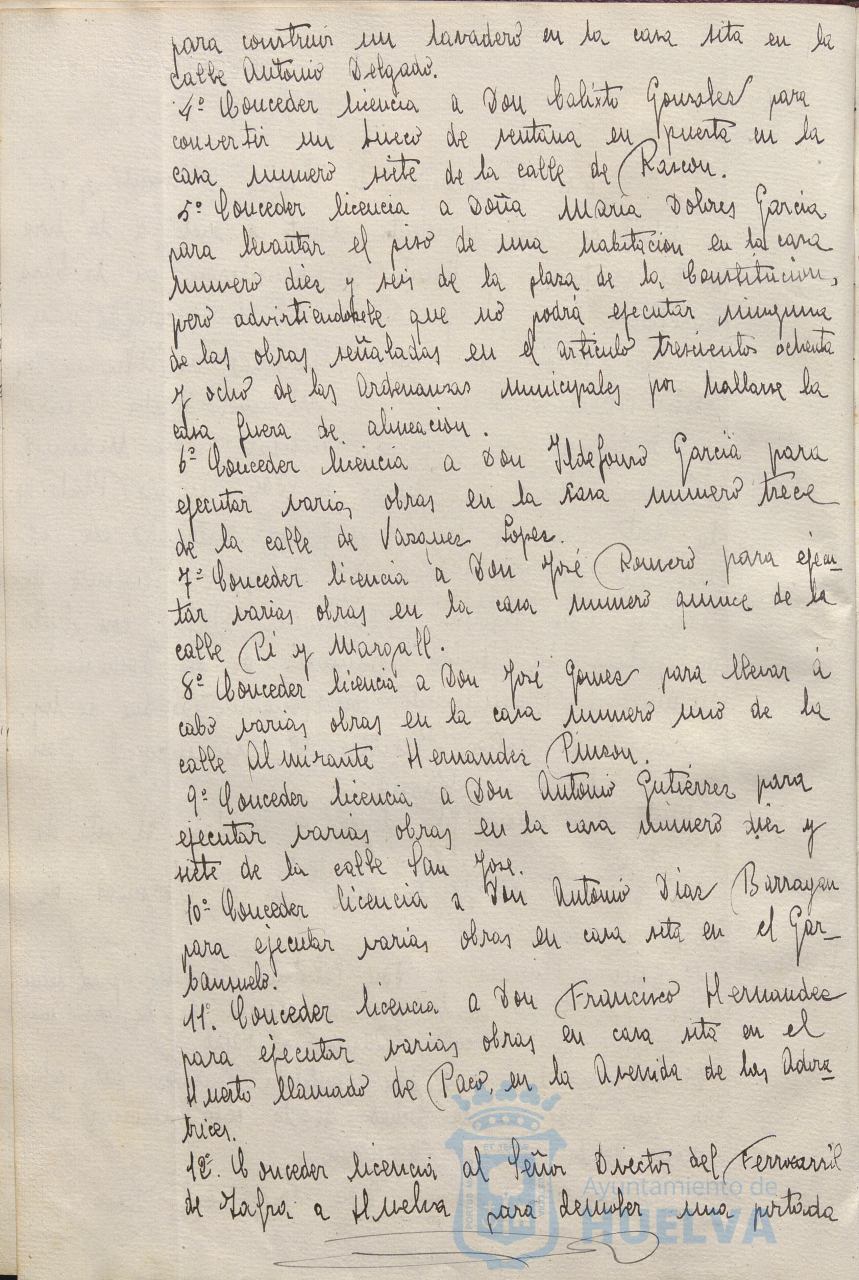 para construir un lavadero en la casa sita en la
calle Antonio Delgado.
4º Conceder licencia a Don Calixto Gonzalez para
convertir un hueco de ventana en puerta en la
casa numero siete de la calle de Rascon.
5º Conceder licencia a Doña Maria Dolores Garcia
para levantar el piso de una habitacion en la casa
numero diez y seis de la plaza de la Constitucion,
pero advirtiendosele que no podrá ejecutar ninguna
de las obras señaladas en el articulo trescientos ochenta
y ocho de las Ordenanzas municipales por hallarse la
casa fuera de alineacion.
6º Conceder licencia a Don Ildefonso Garcia para
ejecutar varias obras en la casa numero trece
de la calle de Vazquez Lopez.
7º Conceder licencia a Don José Romero para ejecu-
tar varias obras en la casa numero quince de la
calle Pi y Margall.
8º Conceder licencia a Don José Gomez para llevar á
cabo varias obras en la casa numero uno de la
calle Almirante Hernandez Pinzon.
9º Conceder licencia a Don Antonio Gutiérrez para
ejecutar varias obras en la casa número diez y
siete de la calle San José.
10º Conceder licencia a Don Antonio Diaz Barragan
para ejecutar varias obras en casa sita en el Gar-
banzuelo.
11º. Conceder licencia a Don Francisco Hernandez
para ejecutar varias obras en casa sita en el
Huerto llamado de Paco, en la Avenida de las Adora-
trices.
12º. Conceder licencia al Señor Director del Ferrocarril
de Zafra a Huelva para demoler una portada
Ayuntamiento de
HUELVA